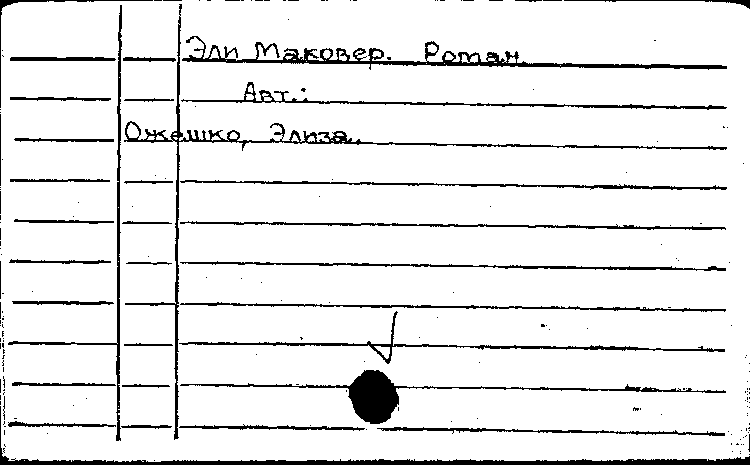 Эли Маковер. Роман.
Авт.:
Ожешко, Элиза.